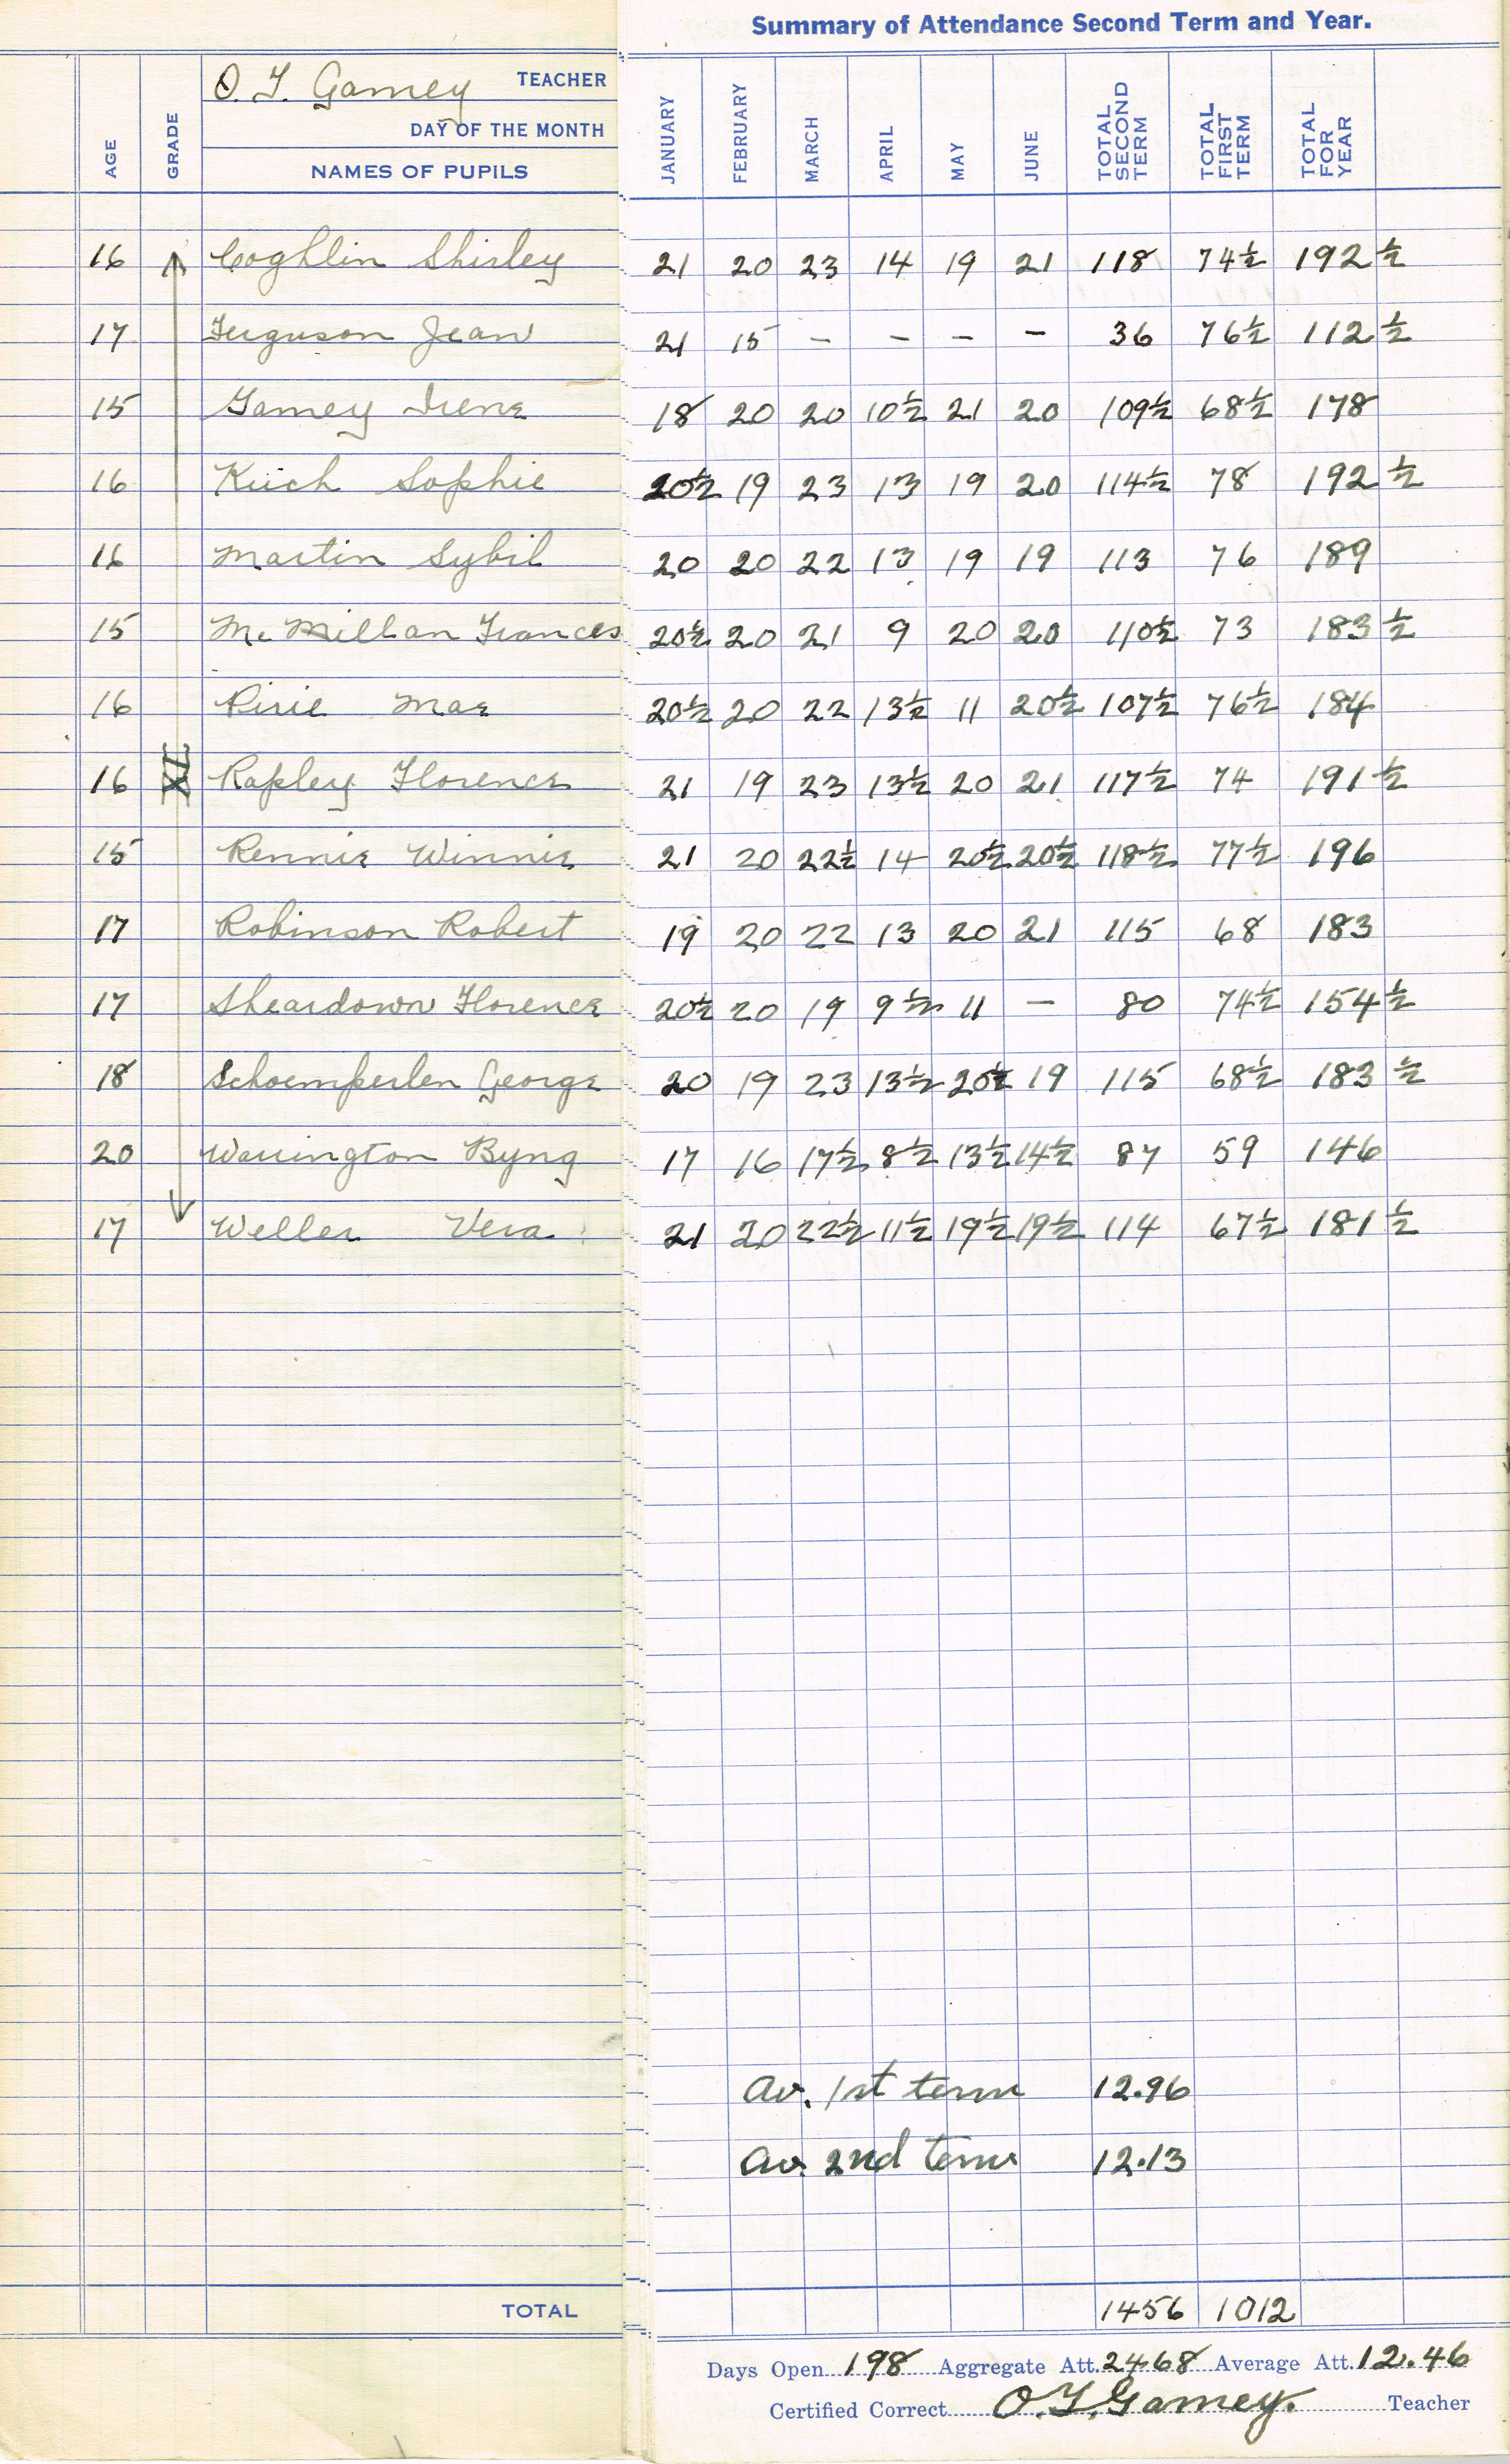 Summary of Attendance Second Term and Year.
O. T. Gamey TEACHER
DAY OF THE MONTH
AGE GRADE NAMES OF PUPILS JANUARY FEBRUARY MARCH APRIL MAY JUNE TOTAL SECOND TERM TOTAL FIRST TERM TOTAL FOR YEAR
16 Coghlin Shirley 21 20 23 14 19 21 118 74½ 192 ½
17 Ferguson Jean 21 15 – – – – 36 76½ 112 ½
15 Gamey Irene 18 20 20 10½ 21 20 109½ 68½ 178
16 Kuch Sophie 20½ 19 23 13 19 20 114½ 78 192 ½
16 Martin Sybil 20 20 22 13 19 19 113 76 189
15 McMillan Frances 20½ 20 21 9 20 20 110½ 73 183 ½
16 Pirie Mae 20½ 20 22 13½ 11 20½ 107½ 76½ 184
16 XI Rapley Florence 21 19 23 13½ 20 21 117½ 74 191 ½
15 Rennie Winnie 21 20 22½ 14 20½ 20½ 118½ 77½ 196
17 Robinson Robert 19 20 22 13 20 21 115 68 183
17 Sheardown Florence 20½ 20 19 9½ 11 – 80 74½ 154 ½
18 Schoemperlen George 20 19 23 13½ 20½ 19 115 68½ 183 ½
20 Warrington Byng 17 16 17½ 8½ 13½ 14½ 87 59 146
17 Weller Vera 21 20 22½ 11½ 19½ 19½ 114 67½ 181 ½
Av. 1st term 12.96
Av. 2nd term 12.13
TOTAL 1456 1012
Days Open 198 Aggregate Att. 2468 Average Att. 12.46
Certified Correct O. T. Gamey. Teacher